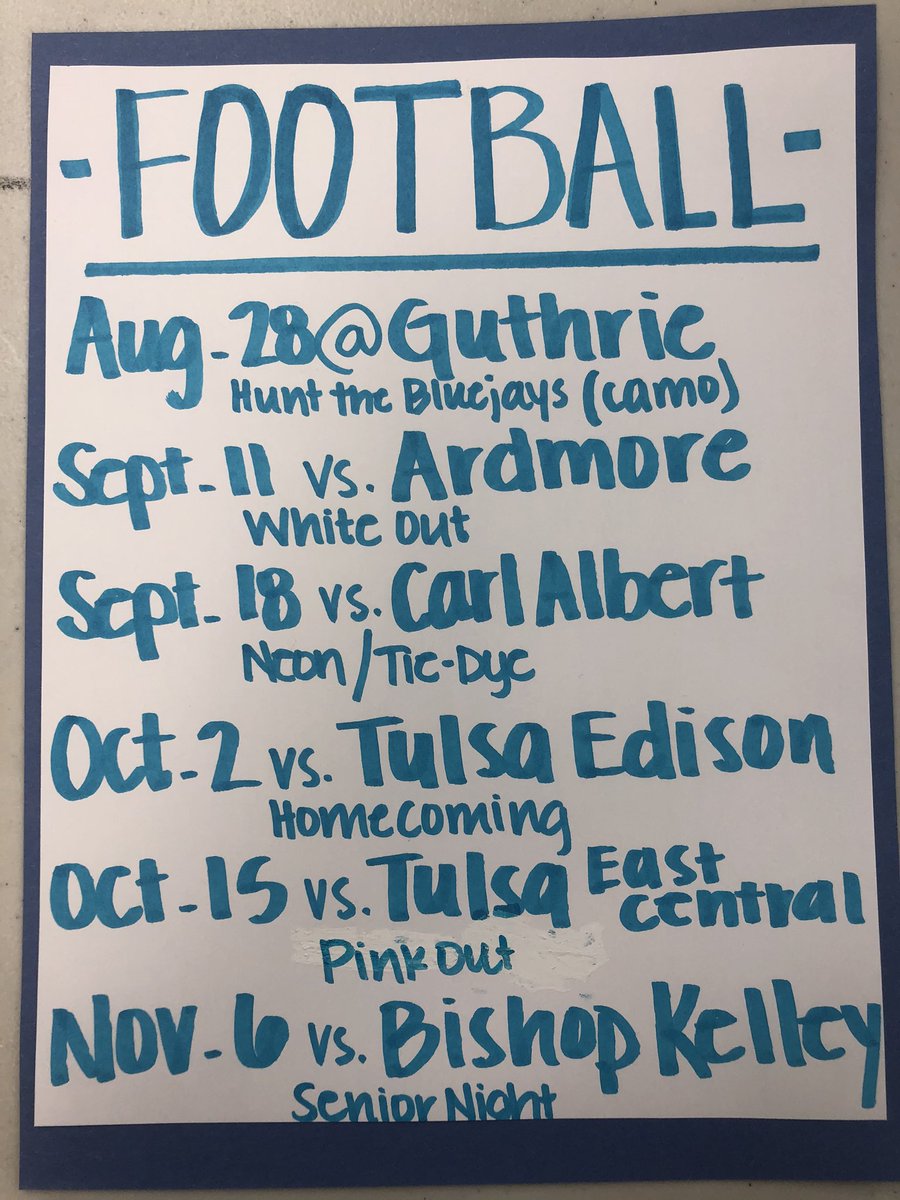 -FOOTBALL-
Aug. 28 @ Guthrie
Hunt the Bluejays (camo)
Sept. 11 vs. Ardmore
White Out
Sept. 18 vs. Carl Albert
Neon/Tie-Dye
Oct. 2 vs. Tulsa Edison
Homecoming
Oct. 15 vs. Tulsa East Central
Pink Out
Nov. 6 vs. Bishop Kelley
Senior Night